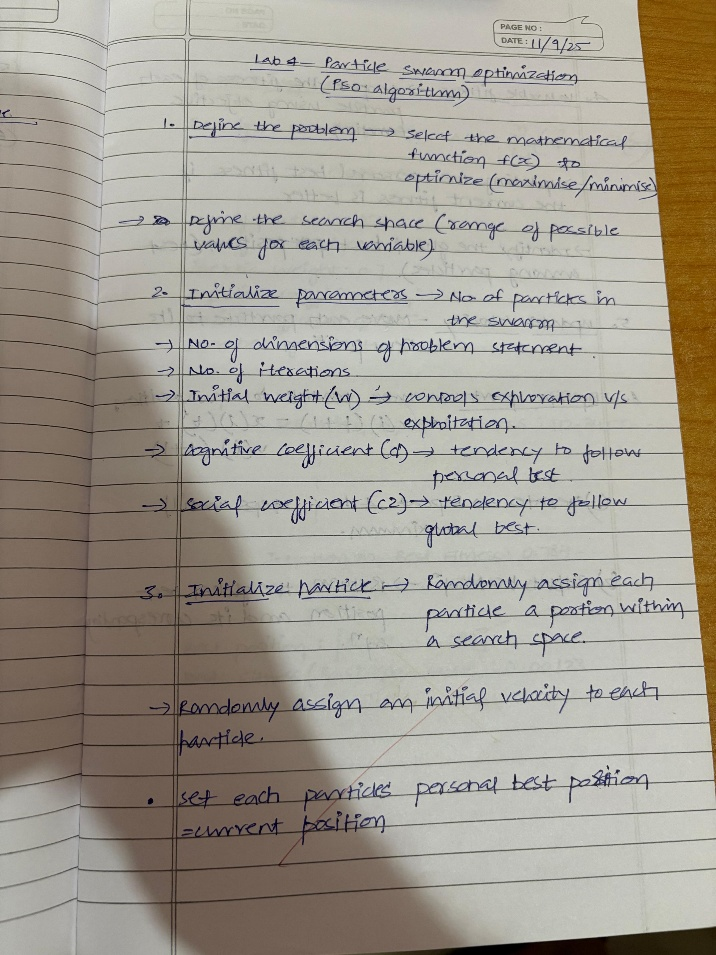 PAGE NO :
DATE : 11/9/25
Lab 4 - Particle swarm optimization
(PSO algorithm)
1. Define the problem → select the mathematical
function f(x) to
optimize (maximise/minimise)
→ Define the search space (range of possible
values for each variable)
2. Initialize parameters → No. of particles in
the swarm
→ No. of dimensions of problem statement.
→ No. of iterations.
→ Initial weight (W) → controls exploration v/s
exploitation.
→ Cognitive coefficient (c1) → tendency to follow
personal best.
→ Social coefficient (c2) → tendency to follow
global best.
3. Initialize particle → Randomly assign each
particle a portion within
a search space.
→ Randomly assign an initial velocity to each
particle.
• set each particles personal best position
= current position